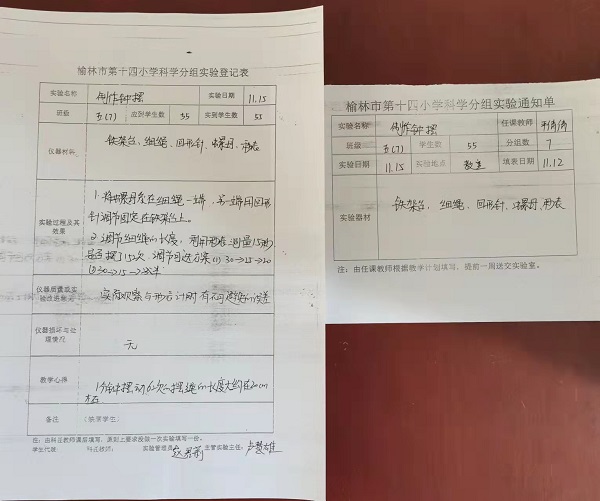 榆林市第十四小学科学分组实验登记表
实验名称 制作钟摆 实验日期 11.15
班级 五(7) 应到学生数 55 实到学生数 55
仪器材料 铁架台、细绳、回形针、螺母、秒表
实验过程及其效果
1.将螺母系在细绳一端,另一端用回形
针调节固定在铁架台上。
2.调节细绳的长度,利用秒表测量15秒
是否摆了15次
仪器质量或实验改进意见 实际观察与秒表计时有不可避免的误差
仪器损坏与处理情况 无
教学心得 1分钟摆动60次的摆绳的长度大约在20cm
左右
备注 (缺席学生)
学生代表 科任教师: 实验管理员: 主管实验主任:
榆林市第十四小学科学分组实验通知单
实验名称 制作钟摆 任课教师
班级 五(7) 学生数 55 分组数 7
实验日期 11.15 实验地点 教室 填表日期 11.12
实验器材 铁架台、细绳、回形针、螺母、秒表
注:由任课教师根据教学计划填写,提前一周送交实验室。